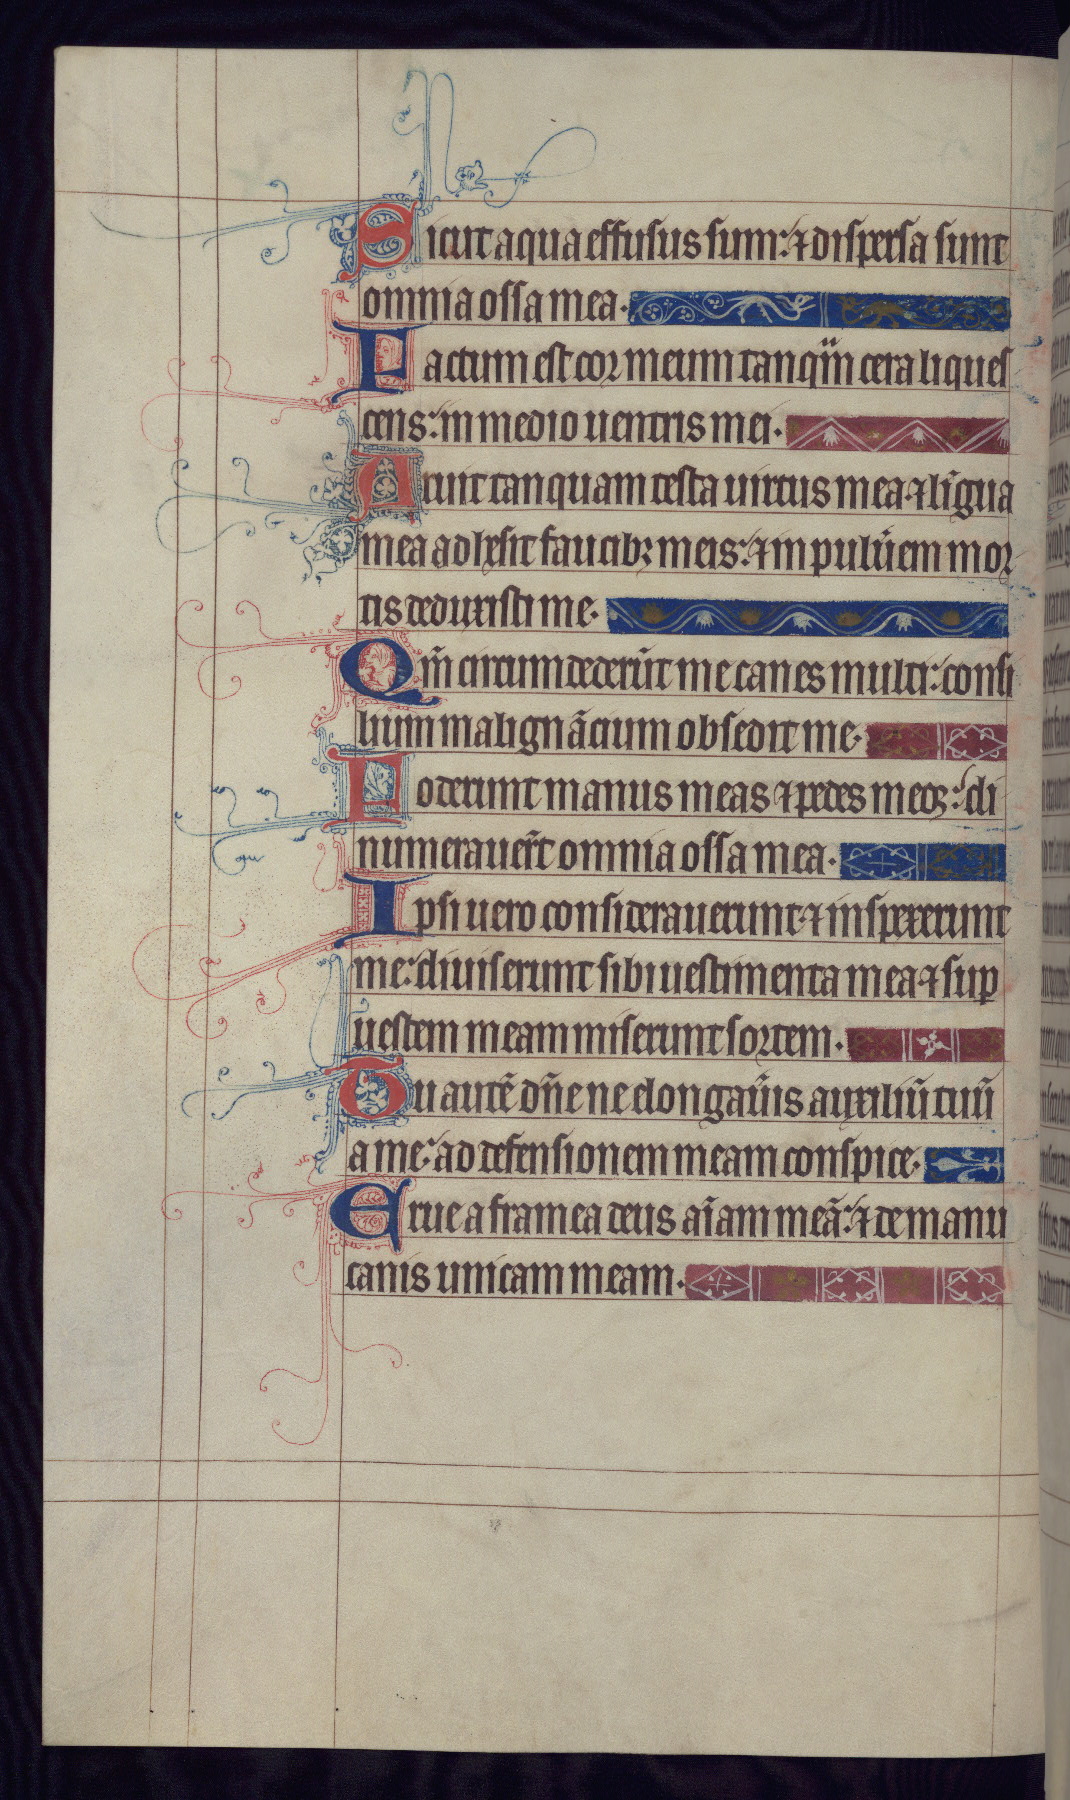 Sicut aqua effusus sum: ⁊ dispersa sunt
omnia ossa mea.
Factum est cor meum tanqm̄ cera liques
cens: in medio uentris mei.
Aruit tanquam testa uirtus mea ⁊ līgua
mea adhesit faucibꝫ meis: ⁊ in puluēem mor
tis deduxisti me.
Qm̄ circumdederūt me canes multi: consi
lium malignācium obsedit me.
Foderunt manus meas ⁊ pedes meos: di
numerauer̄t omnia ossa mea.
Ipsi uero considerauerunt ⁊ inspexerunt
me: diuiserunt sibi uestimenta mea ⁊ sup
uestem meam miserunt sortem.
Tu autē dn̄e ne elongau̾is auxiliū tuū
a me: ad defensionem meam conspice.
Erue a framea deus ai̅am meā: ⁊ de manu
canis unicam meam.